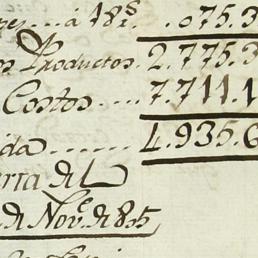 á 18s. .075.3
Productos. 2.775.3
Costos.... 7.711.1
ida ...... 4.935.6
erta del
de Nove. de 855